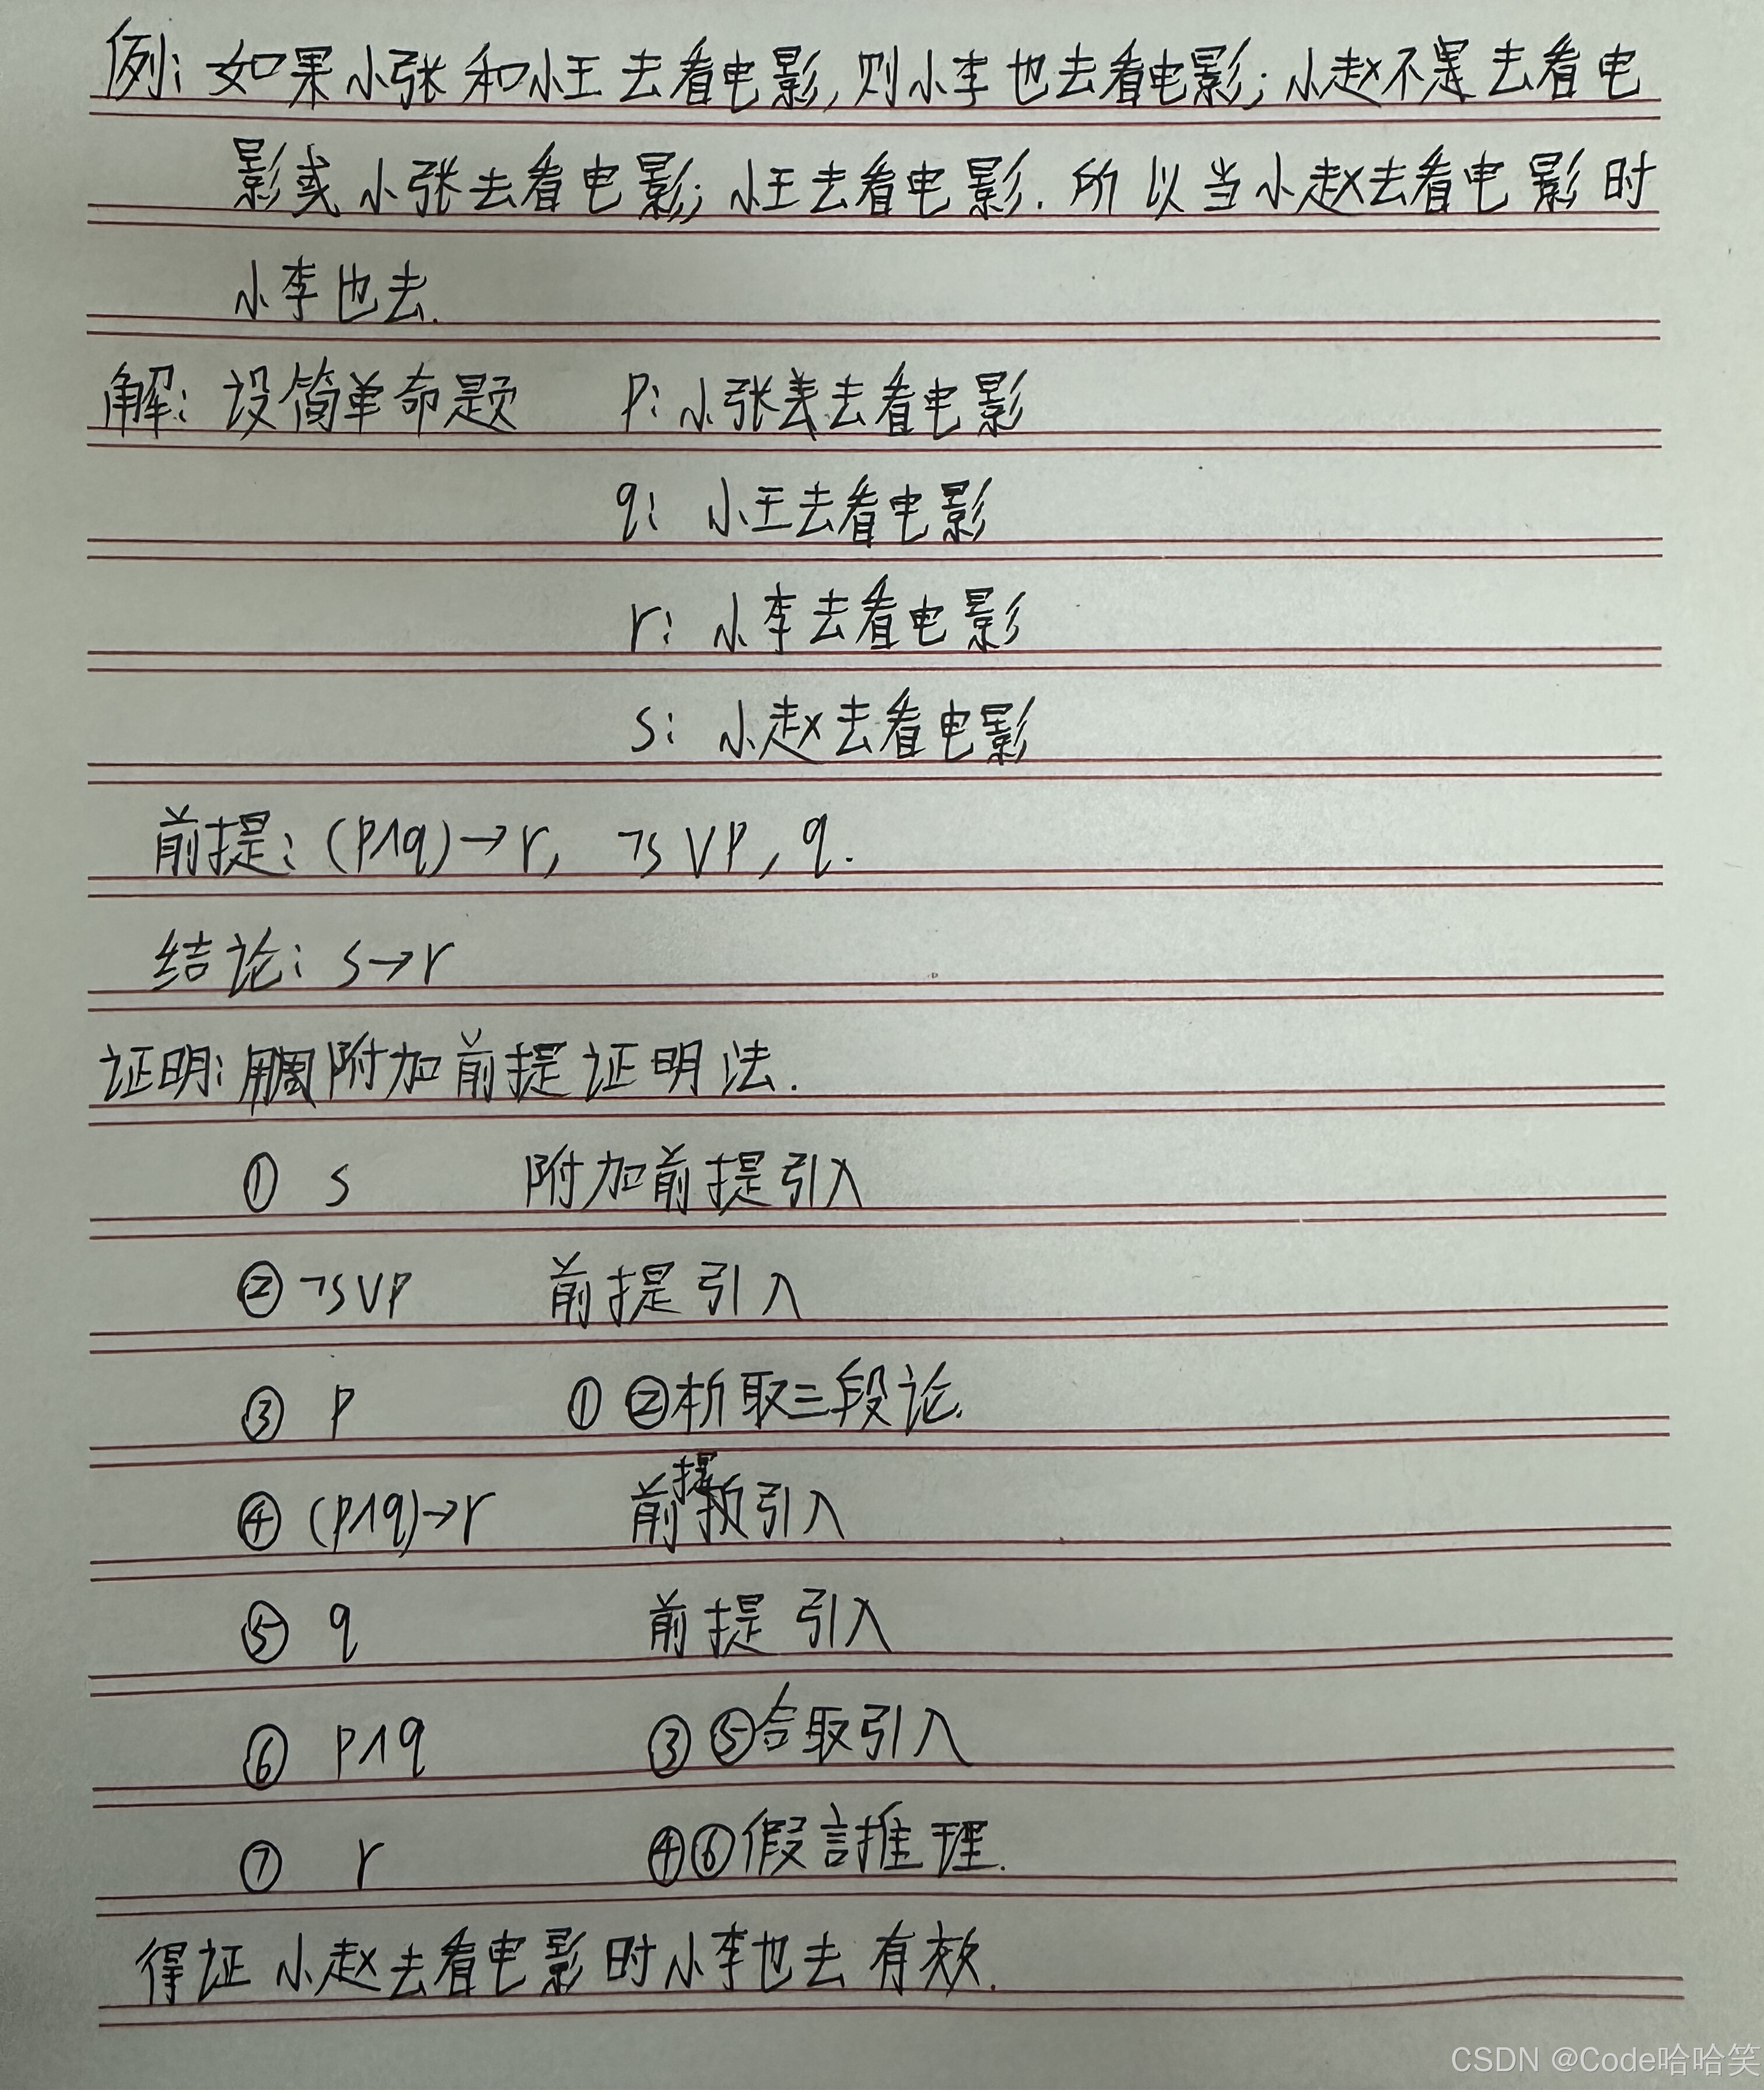 例: 如果小张和小王去看电影,则小李也去看电影; 小赵不是去看电
影或小张去看电影; 小王去看电影. 所以当小赵去看电影时
小李也去.
解: 设简单命题 P: 小张去看电影
q: 小王去看电影
r: 小李去看电影
s: 小赵去看电影
前提: (P∧q)→r, ¬s∨P, q.
结论: s→r
证明: 用附加前提证明法.
① s 附加前提引入
② ¬s∨P 前提引入
③ P ①②析取三段论.
④ (P∧q)→r 前提引入
⑤ q 前提引入
⑥ P∧q ③⑤合取引入
⑦ r ④⑥假言推理.
得证 小赵去看电影时小李也去 有效.
CSDN @Code哈哈笑